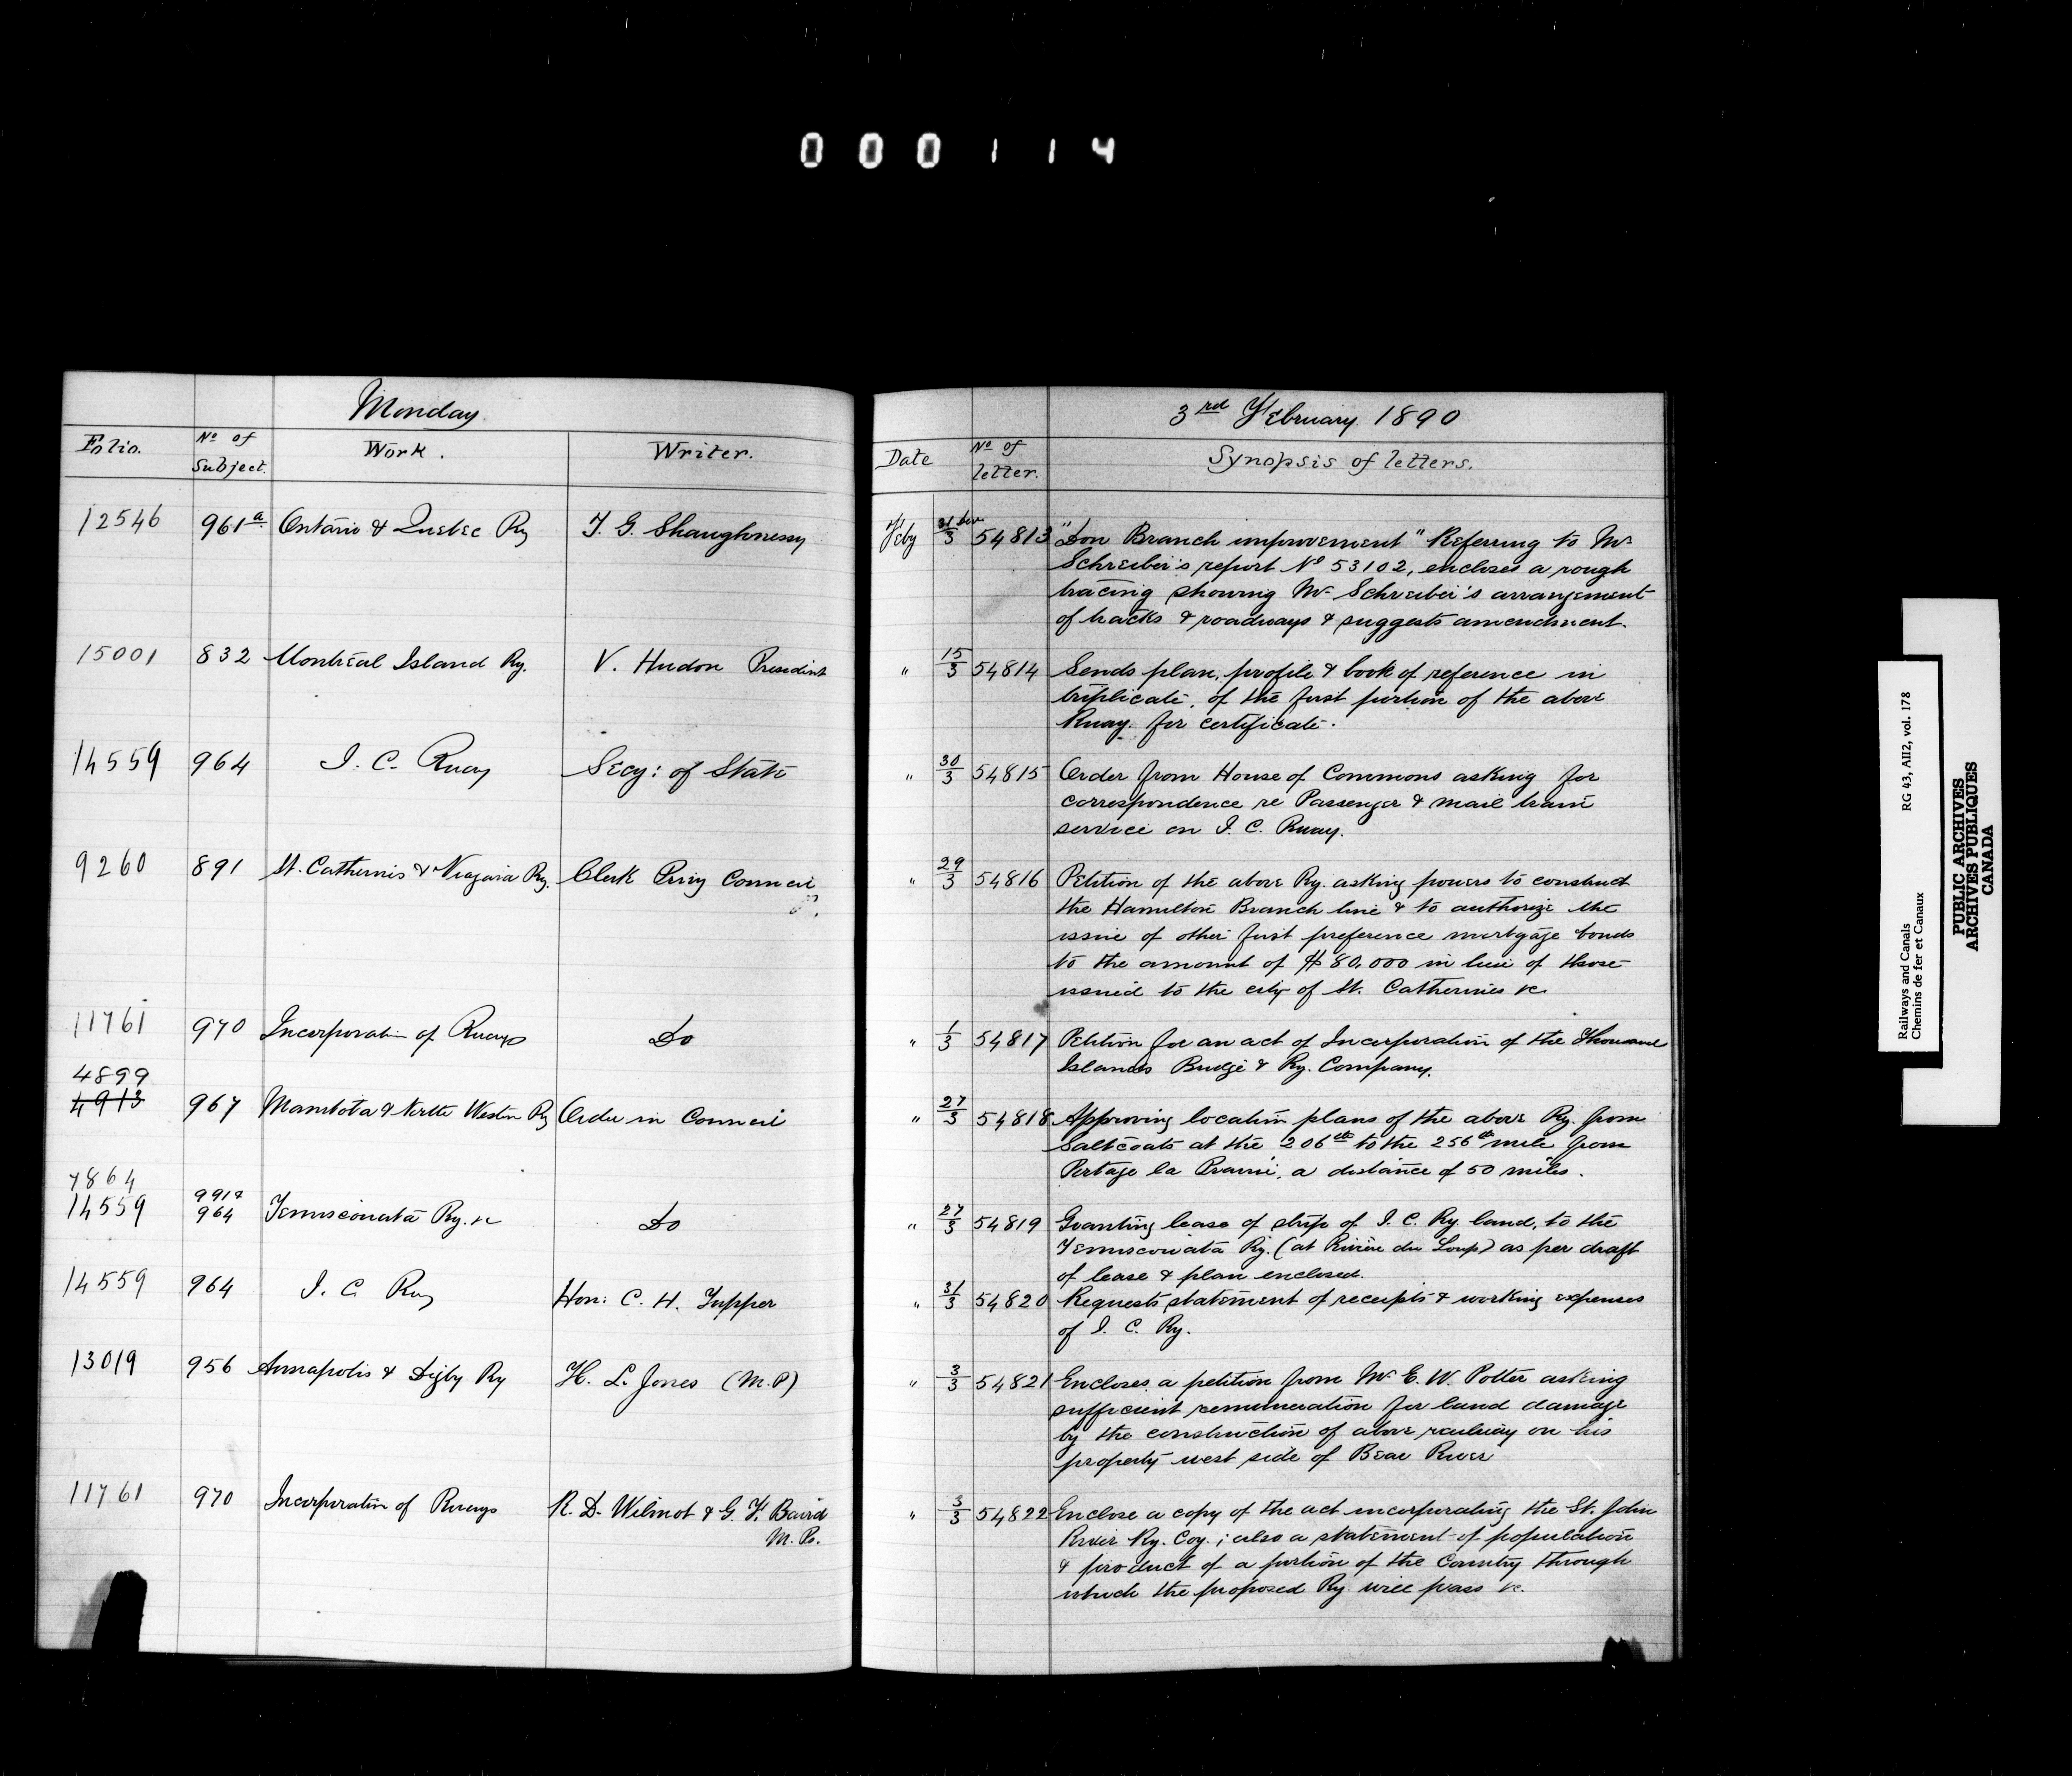 000114
Monday
Folio.
No of Subject.
Work.
Writer.
12546 961a Ontario & Quebec Ry T. G. Shaughnessy
15001 832 Montreal Island Ry. V. Hudon President
14559 964 I. C. Rway Secy: of State
9260 891 St. Catherines & Niagara Ry. Clerk Privy Council
11761 970 Incorporation of Rways Do
4899
4913 967 Manitoba & North Western Ry Order in Council
7864
14559 964 Temiscouata Ry. &c Do
14559 964 I. C. Ry Hon: C. H. Tupper
13019 956 Annapolis & Digby Ry H. L. Jones (M.P)
11761 970 Incorporation of Rways R. D. Wilmot & G. F. Baird
M. Ps.
3rd February 1890
Date
No of letter.
Synopsis of letters.
Feby 31/3 54813 "Don Branch improvement" Referring to Mr
Schreiber's report No 53102, encloses a rough
tracing showing Mr Schreiber's arrangement
of tracks & roadways & suggests amendment.
" 15/3 54814 Sends plan, profile & book of reference in
triplicate, of the first portion of the above
Rway. for certificate.
" 30/3 54815 Order from House of Commons asking for
correspondence re Passenger & mail train
service on I. C. Rway.
" 29/3 54816 Petition of the above Ry. asking powers to construct
the Hamilton Branch line & to authorize the
issue of other first preference mortgage bonds
to the amount of $80,000 in lieu of those
issued to the city of St. Catherines &c
" 1/3 54817 Petition for an act of Incorporation of the Thousand
Islands Bridge & Ry. Company.
" 27/3 54818 Approving location plans of the above Ry. from
Saltcoats at the 206th to the 256th mile from
Portage la Prairie, a distance of 50 miles.
" 27/3 54819 Granting lease of strip of I. C. Ry. land, to the
Temiscouata Ry. (at Rivière du Loup) as per draft
of lease & plan enclosed.
" 31/3 54820 Requests statement of receipts & working expenses
of I. C. Ry.
" 3/3 54821 Encloses a petition from Mr E. W. Potter asking
sufficient remuneration for land damage
by the construction of above railway on his
property west side of Bear River
" 3/3 54822 Enclose a copy of the act incorporating the St. John
River Ry. Coy.; also a statement of population
& product of a portion of the Country through
which the proposed Ry. will pass &c.
Railways and Canals
Chemins de fer et Canaux
RG 43, AII2, vol. 178
PUBLIC ARCHIVES
ARCHIVES PUBLIQUES
CANADA